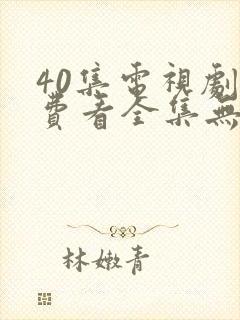 40集電視劇
費看全集無
林嫩青